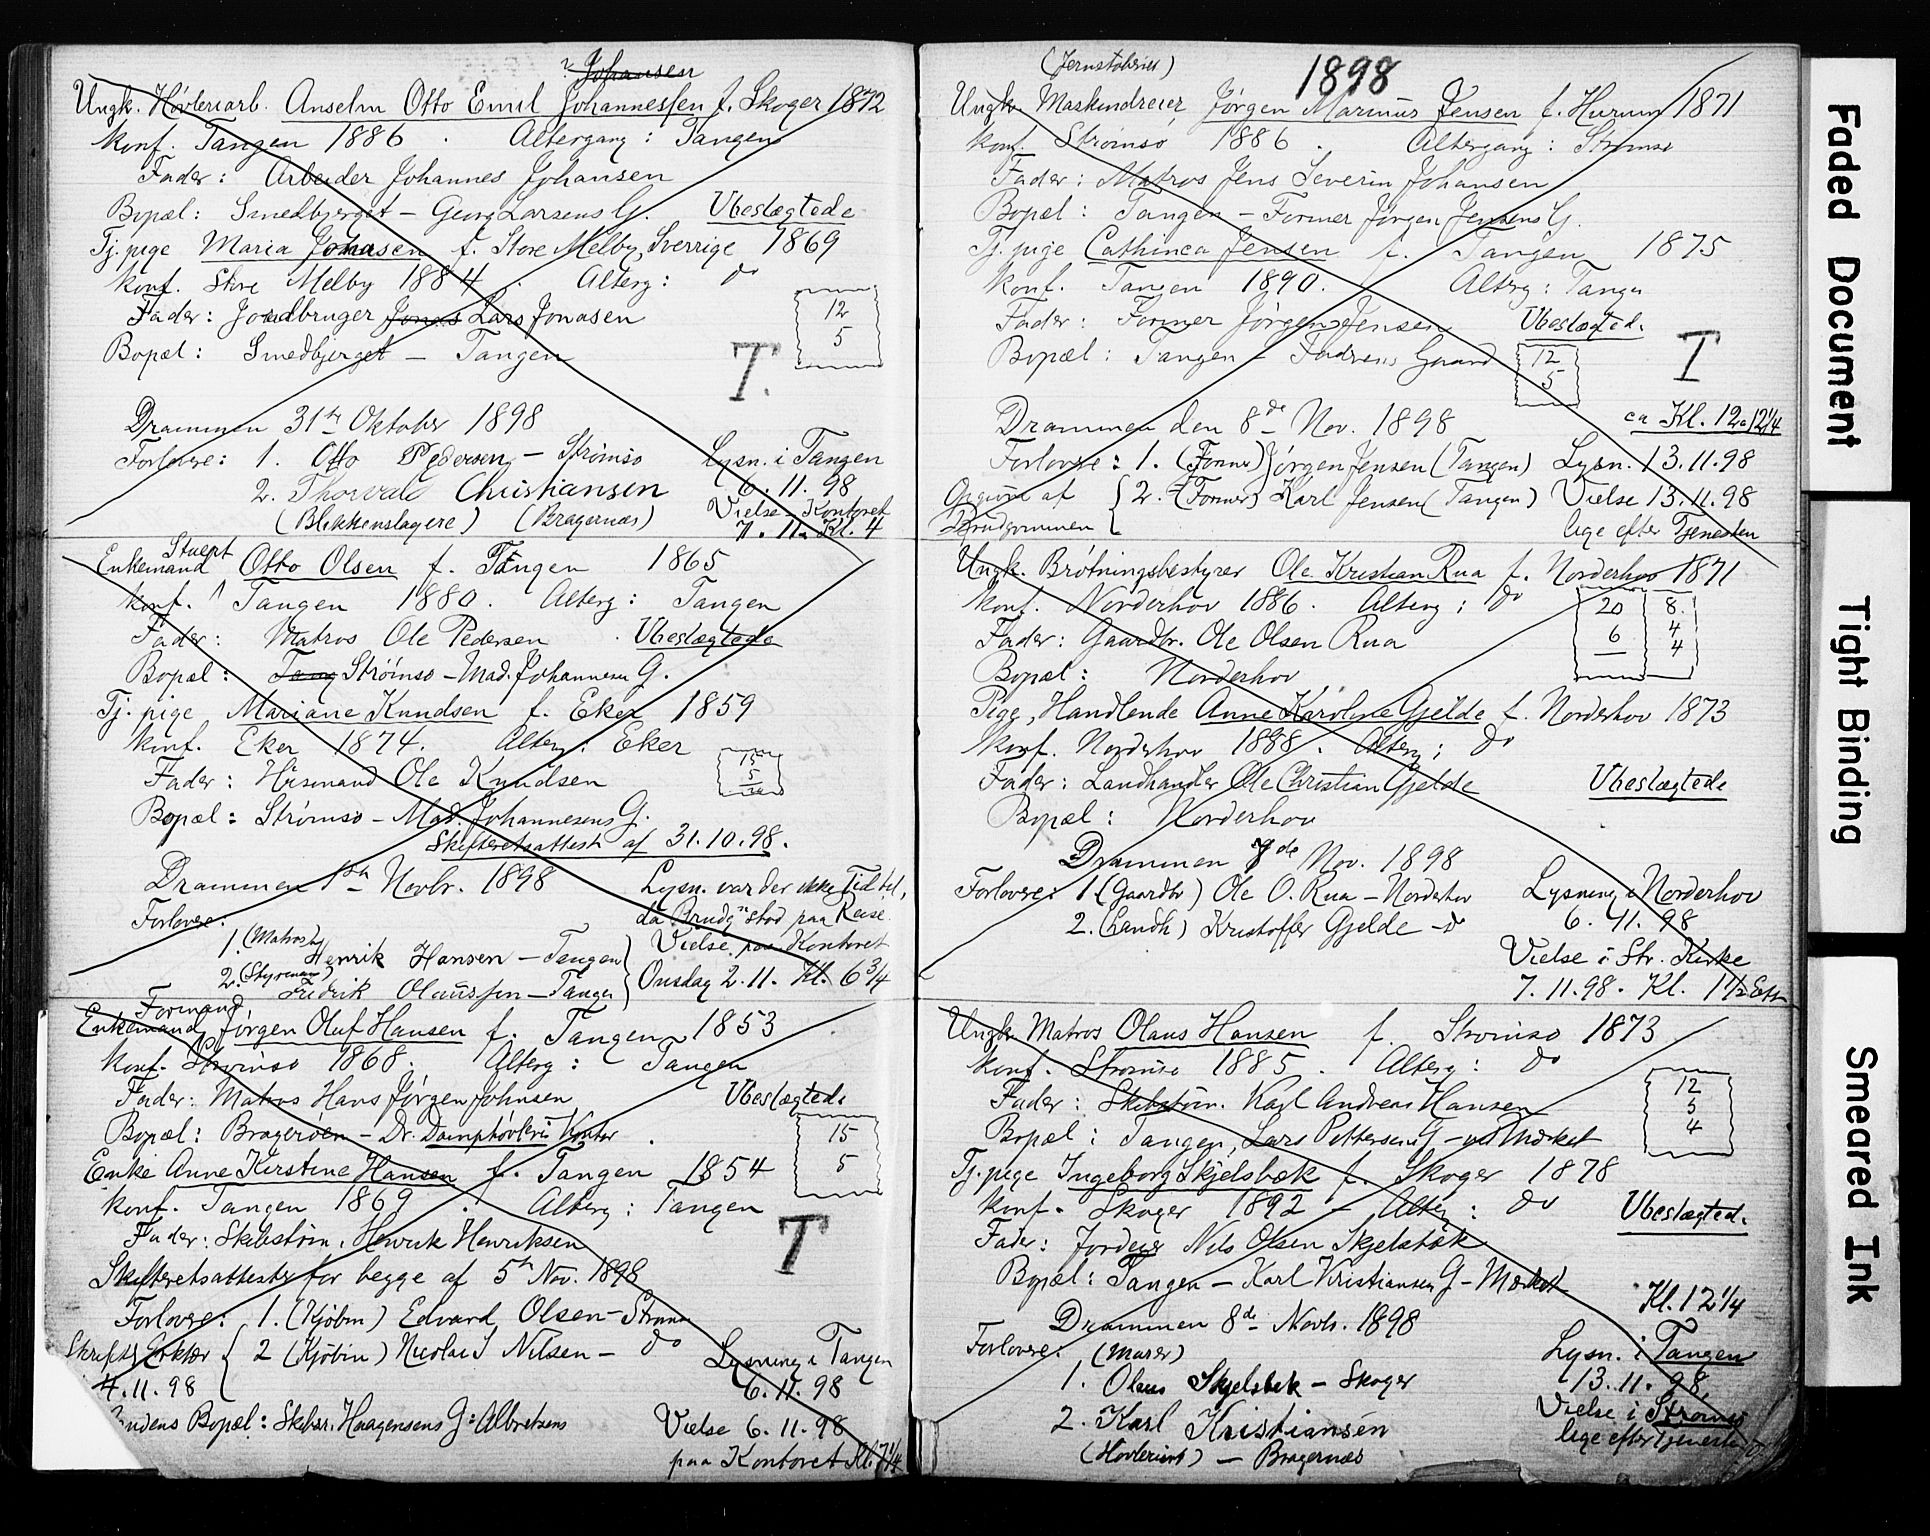 Johansen
Ungk. Høvleriarb. Anselm Otto Emil Johannessen f. Skoger 1872
konf. Tangen 1886. Altergang: Tangen
Fader: Arbeider Johannes Johansen
Bopæl: Smedbjerget – Georg Larsens G. Ubeslægtede
Tj. pige Maria Jonasen f. Store Melby, Sverrige 1869
konf. Store Melby 1884. Alterg: do
Fader: Jordbruger Jonas Lars Jonasen
12
5
Bopæl: Smedbjerget – Tangen
T.
Drammen 31te Oktober 1898
Forlovere: 1. Otto Pedersen – Strømsø Lysn. i Tangen
2. Thorvald Christiansen 6.11.98
(Blikkenslagere) (Bragernæs) Vielse Kontoret
7.11. Kl. 4
Stuert
Enkemand Otto Olsen f. Tangen 1865
konf. Tangen 1880. Alterg: Tangen
Fader: Matros Ole Pedersen. Ubeslægtede
Bopæl: Tang Strømsø – Mad. Johannesens G.
Tj. pige Mariane Knudsen f. Eker 1859
konf. Eker 1874. Alterg: Eker
15
5
Fader: Husmand Ole Knudsen
Bopæl: Strømsø – Mad. Johannesens G.
Skifteretsattest af 31.10.98.
Drammen 1ste Novbr. 1898 Lysn. var der ikke Tid til,
Forlovere: da Brudg. stod paa Reise
1. (Matros) Henrik Hansen – Tangen Vielse paa Kontoret
2. (Styrmand) Fredrik Olaussen – Tangen Onsdag 2.11. Kl. 6 3/4
Formand
Enkemand Jørgen Oluf Hansen f. Tangen 1853
konf. Strømsø 1868. Alterg: Tangen
Fader: Matros Hans Jørgen Johnsen Ubeslægtede
Bopæl: Bragerøen – Dr. Damphøvleris Kontor.
15
5
Enke Anne Kirstine Hansen f. Tangen 1854
konf. Tangen 1869. Alterg: Tangen
Fader: Skibstøm. Henrik Henriksen
T
Skifteretsattester for begge af 5te Nov. 1898
Forlovere: 1. (Kjøbm) Edvard Olsen – Strøms
2 (Kjøbm) Nicolai J Nilsen – do Lysning i Tangen
4.11.98 6.11.98
Bopæl: Skibsr. Haagensens G: Albretsens Vielse 6.11.98
paa Kontoret Kl. 7 1/4
(Jernstøberiet)
1898
Ungk. Maskindreier Jørgen Marinus Jensen f. Hurum 1871
konf. Strømsø 1886. Altergang: Strømsø
Fader: Matros Jens Severin Johansen
Bopæl: Tangen – Former Jørgen Jensens G.
Tj. pige Cathinca Jensen f. Tangen 1875
konf. Tangen 1890. Alterg: Tangen
Fader: Former Jørgen Jensen Ubeslægted.
Bopæl: Tangen – Faderens Gaard
12
5
T
Drammen den 8de Nov. 1898 ca Kl. 12 a 12 1/4
Forlovere: 1. (Former) Jørgen Jensen (Tangen) Lysn. 13.11.98
Opgivne af 2. (Former) Karl Jensen (Tangen) Vielse 13.11.98
Brudgommen lige efter Tjenesten
Ungk. Brøtningsbestyrer Ole Kristian Rua f. Norderhov 1871
konf. Norderhov 1886. Alterg: do
20 8
6 4
4
Fader: Gaardbr. Ole Olsen Rua
Bopæl: Norderhov
Pige, Handlende Anne Karoline Gjelde f. Norderhov 1873
konf. Norderhov 1888. Alterg: do
Fader: Landhandler Ole Christian Gjelde Ubeslægtede
Bopæl: Norderhov
Drammen 7de Nov. 1898
Forlovere: 1 (Gaardbr) Ole O. Rua – Norderhov Lysning i Norderhov
2. (Landh) Kristoffer Gjelde – do 6.11.98
Vielse i Str. Kirke
7.11.98. Kl. 1 1/2 Eftm
Ungk. Matros Olaus Hansen f. Strømsø 1873
konf. Strømsø 1885. Alterg: do
Fader: Skibstøm. Karl Andreas Hansen
12
5
4
Bopæl: Tangen, Lars Pettersens G – ved Mærket
Tj. pige Ingeborg Skjelsbæk f. Skoger 1878
konf. Skoger 1892 – Alterg: do Ubeslægted.
Fader: Jordeier Nils Olsen Skjelsbæk
Bopæl: Tangen – Karl Kristiansens G – Mærket
Kl. 12 1/4
Drammen 8de Novb. 1898
Forlovere: (Murer) Lysn. i Tangen
1. Olaus Skjelsbek – Skoger 13.11.98
2. Karl Kristiansen Vielse i Strømsø
lige efter Tjenesten
(Høvleriarb) – Bragernæs
Faded Document
Tight Binding
Smeared Ink